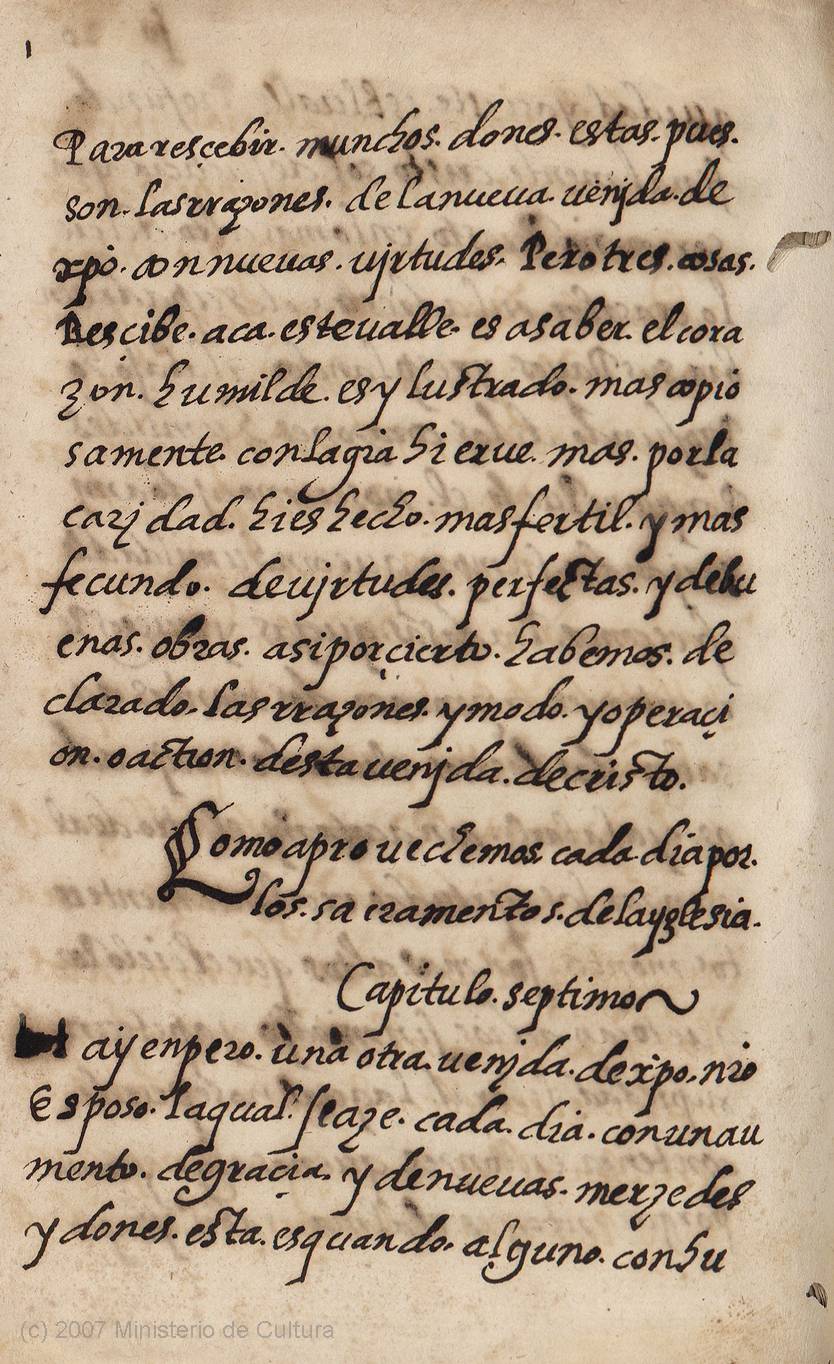 Para rescebir. munchos. dones. estas. pues.
son. las rrazones. de la nueva. venjda. de
xpo. con nuevas. vjrtudes. Pero tres. cosas.
Rescibe. aca. este valle. es a saber. el cora
zon. humilde. es y lustrado. mas copio
samente. con la gra hierve. mas. por la
carjdad. hi es hecho. mas fertil. y mas
fecundo. de vjrtudes. perfectas. y de bu
enas. obras. asi por cierto. habemos. de
clarado. las rrazones. y modo. y operaçi
on. o action. desta venjda. de cristo.
Como aprovechemos cada dia por.
los. sacramentos. de la yglesia.
Capitulo. septimo
Hay enpero. una otra. venjda. de xpo. nro
Esposo. la qual. se aze. cada. dia. con un au
mento. de graçia. y de nuevas. merzedes
y dones. esta. es quando. alguno. con hu
(c) 2007 Ministerio de Cultura